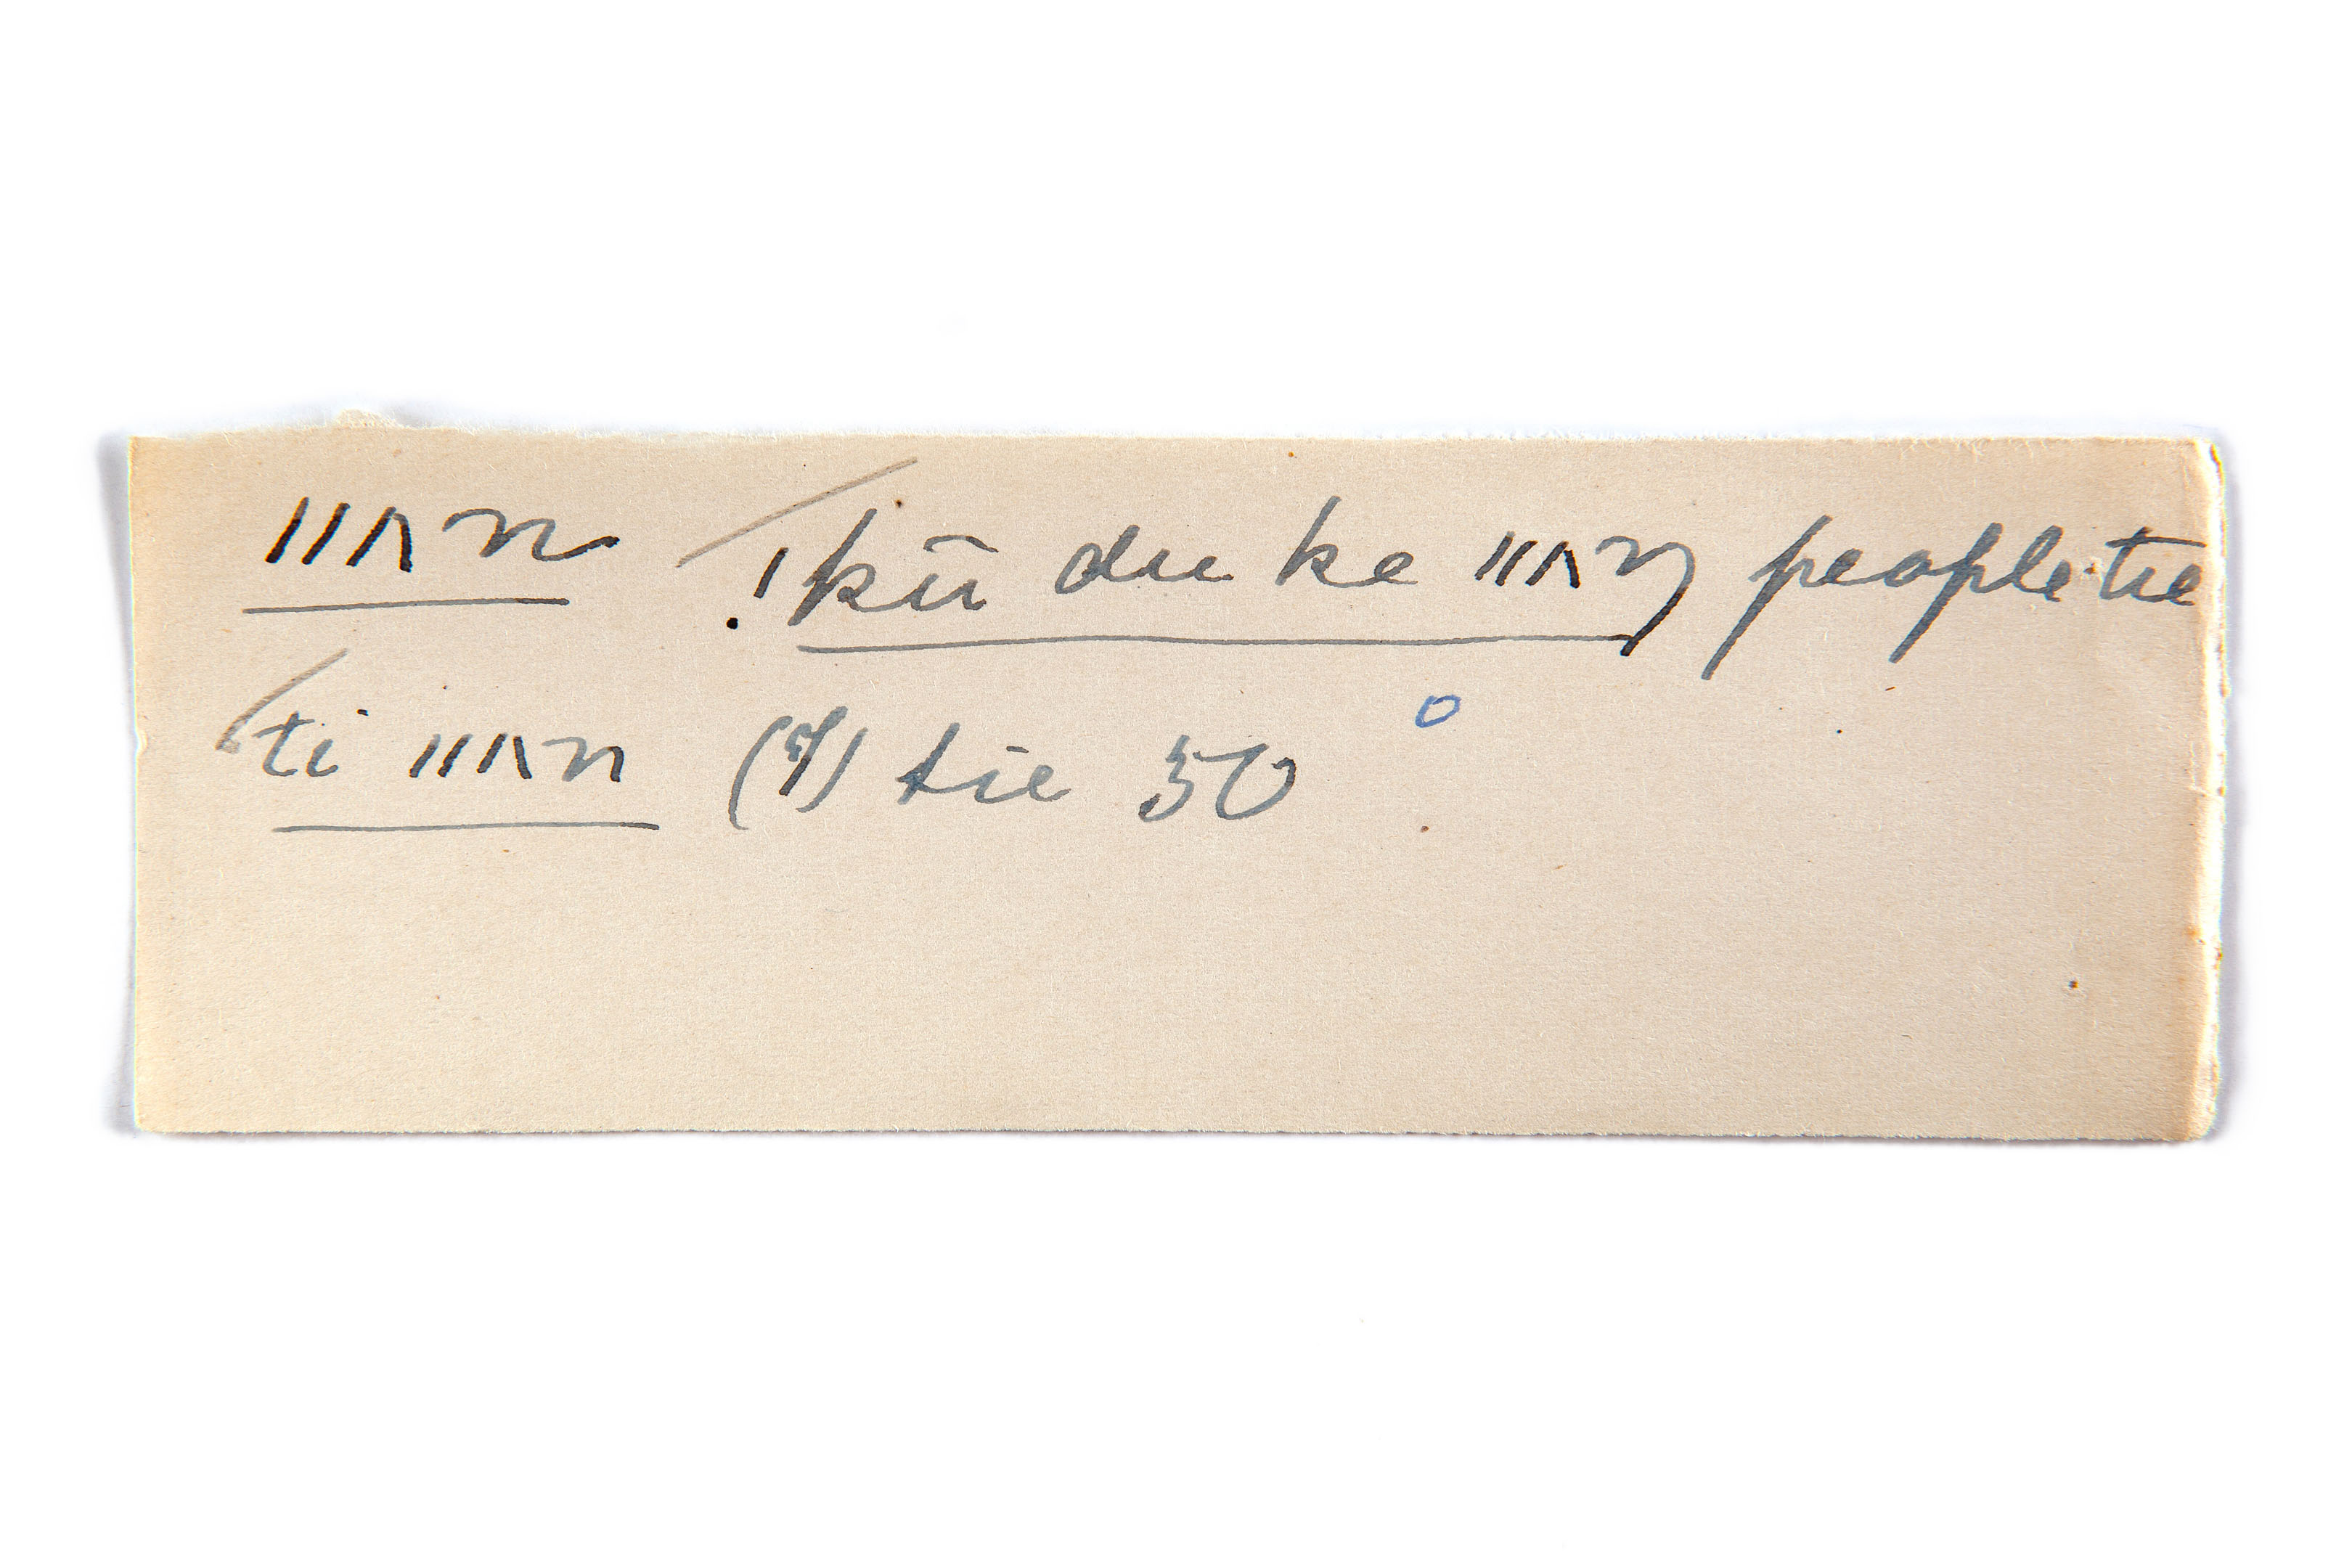 ǁʌn !kū du ke ǁʌŋ people tie
ti ǁʌn (ʔ) tie 50